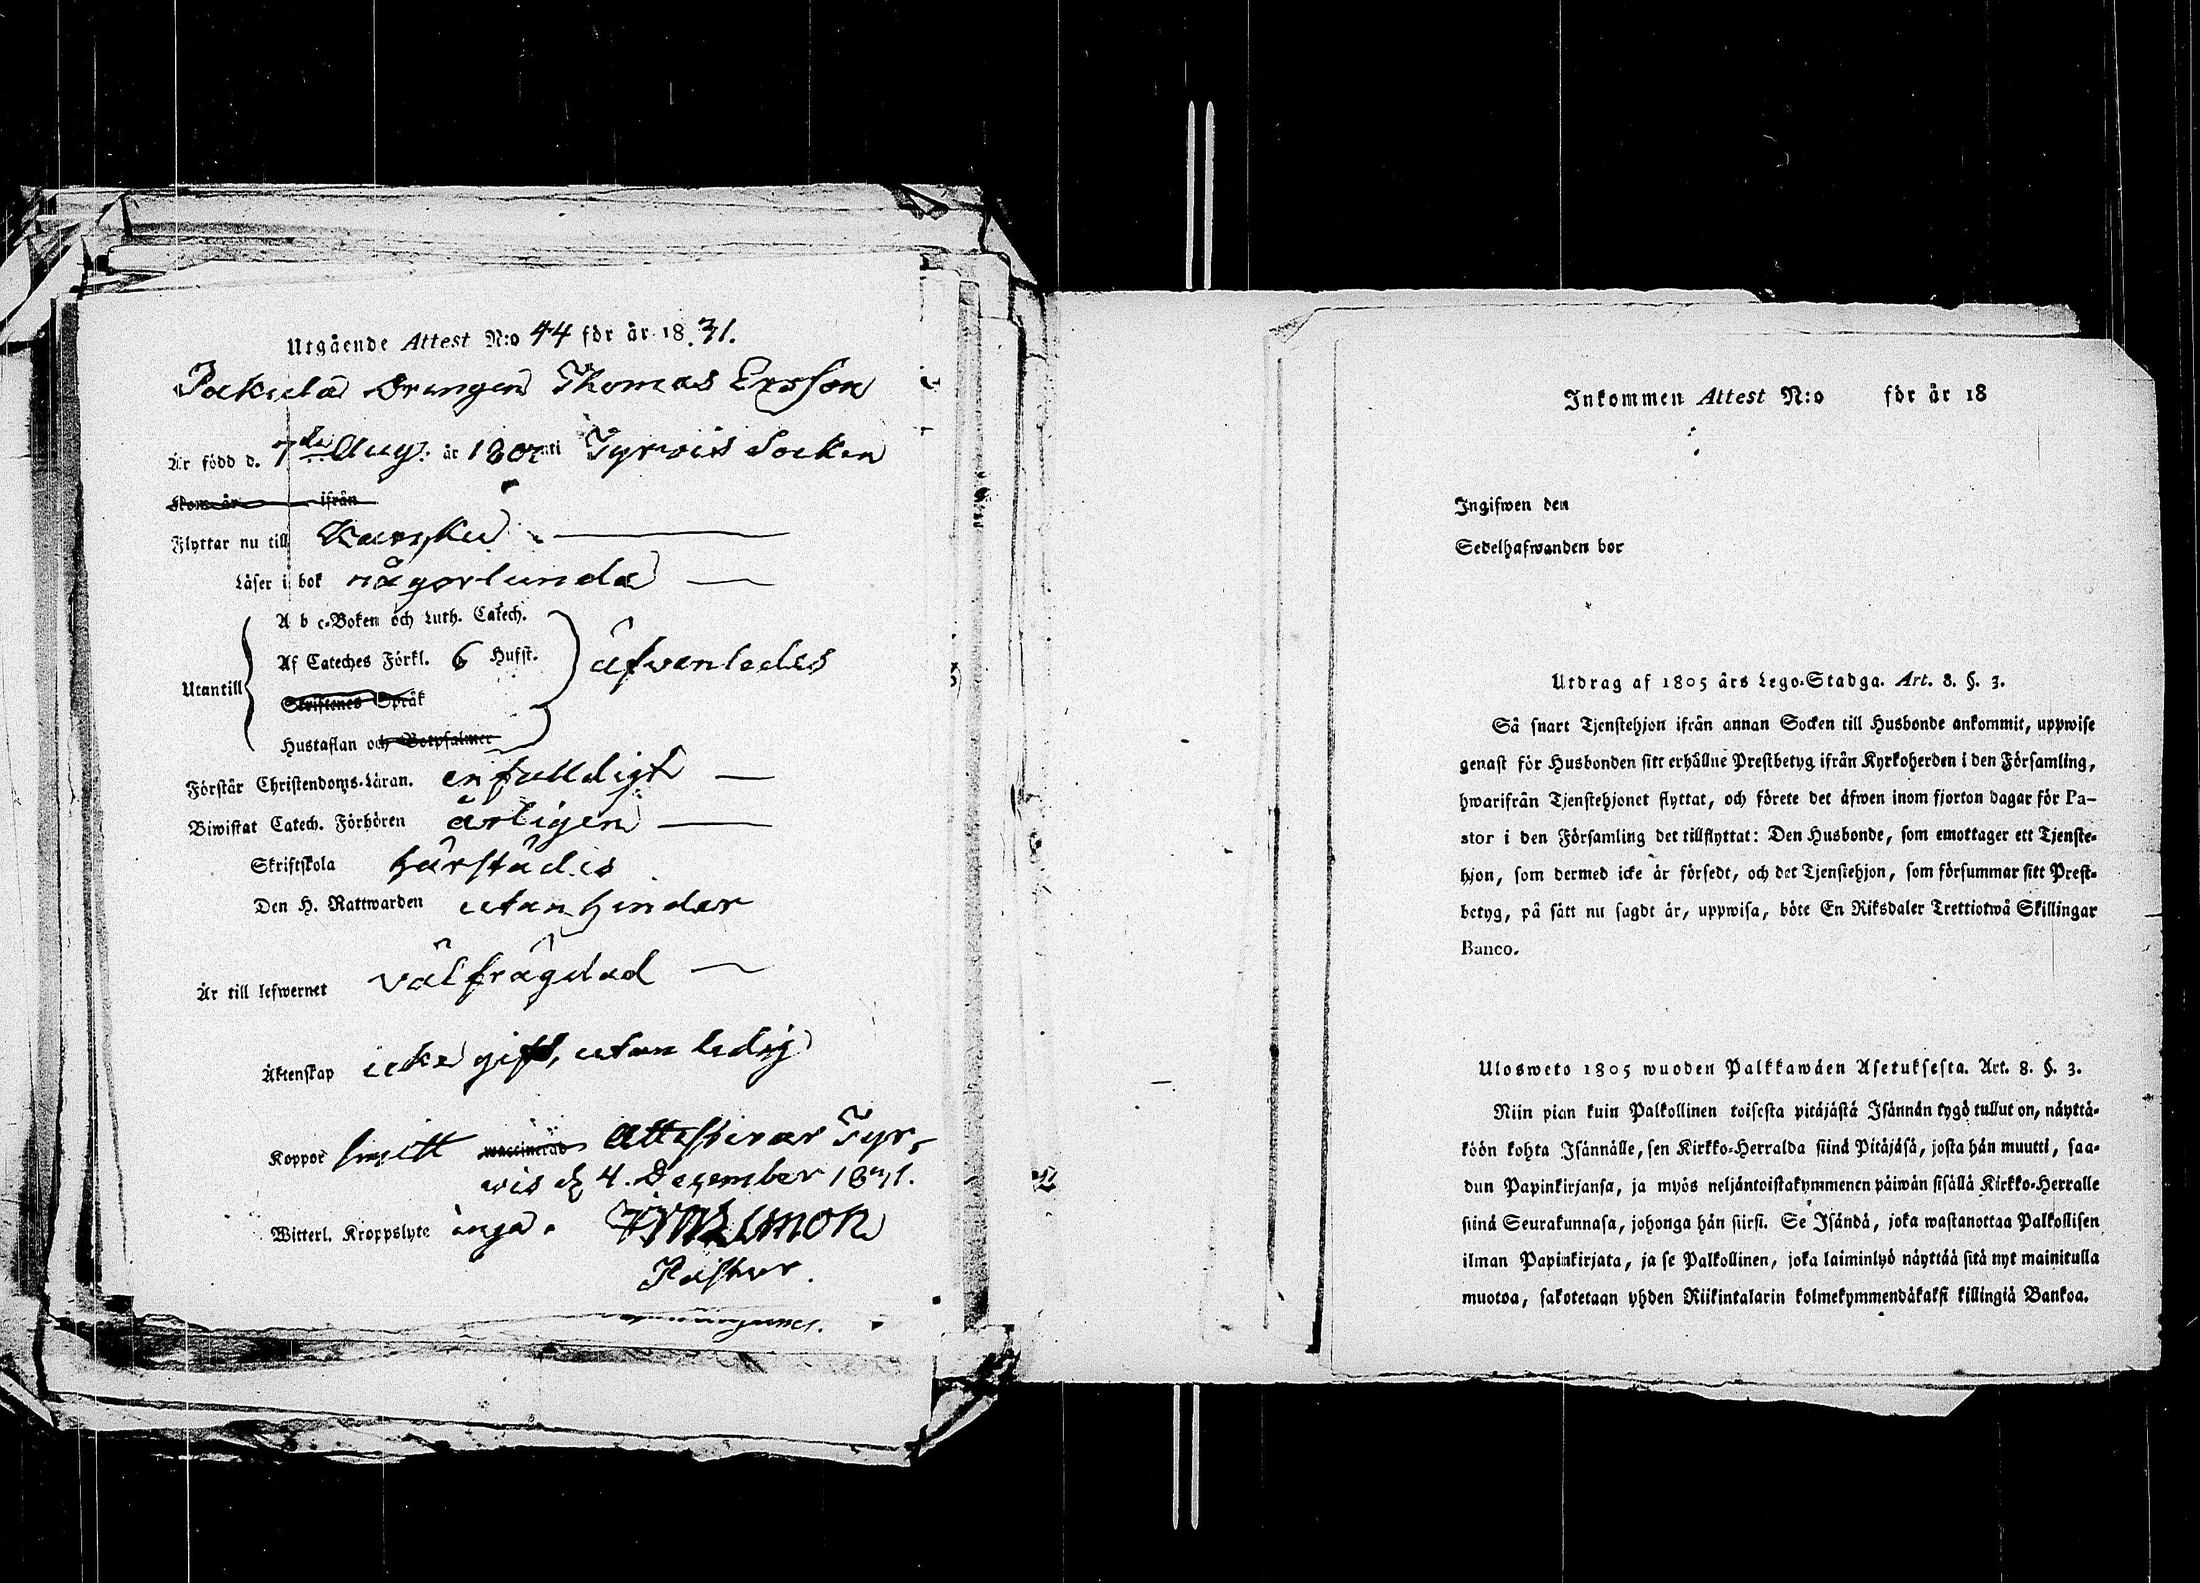 Utgående Attest N:o 44 för år 1831.
Drengen Thomas Ersson
Är född d. 7de Aug. år i Tyrvis Socken
Kom år ifrån
Flyttar nu till Karkku
Läser i bok någorlunda
A b c-Boken och Luth. Catech.
Af Cateches Förkl. 6 Hufst.
Utantill äfvenledes
Skriftenes Språk
Hustaflan och Botpsalmer
Förstår Christendoms-Läran. enfaldigt
Biwistat Catech. Förhören årligen
Skriftskola härstädes
Den H. Nattwarden utan hinder
Är till lefwernet välfrägdad
Äktenskap icke gift, utan ledig
Koppor haft waccinerad Attesterar Tyr-
vis d. 4. December 1831.
Witterl. Kroppslyte inga.
Pastor.
Inkommen Attest N:o för år 18
Ingifwen den
Sedelhafwanden bor
Utdrag af 1805 års Lego-Stadga. Art. 8. §. 3.
Så snart Tjenstehjon ifrån annan Socken till Husbonde ankommit, uppwise
genast för Husbonden sitt erhållne Prestbetyg ifrån Kyrkoherden i den Församling,
hwarifrån Tjenstehjonet flyttat, och förete det äfwen inom fjorton dagar för Pa-
stor i den Församling det tillflyttat: Den Husbonde, som emottager ett Tjenste-
hjon, som dermed icke är försedt, och det Tjenstehjon, som försummar sitt Prest-
betyg, på sätt nu sagdt är, uppwisa, böte En Riksdaler Trettiotwå Skillingar
Banco.
Ulosweto 1805 wuoden Palkkawäen Asetuksesta. Art. 8. §. 3.
Niin pian kuin Palkollinen toisesta pitäjästä Isännän tygö tullut on, näyttä-
köön kohta Isännälle, sen Kirkko-Herralda siinä Pitäjäsä, josta hän muutti, saa-
dun Papinkirjansa, ja myös neljäntoistakymmenen päiwän sisällä Kirkko-Herralle
siinä Seurakunnasa, johonga hän siirsi. Se Isändä, joka wastanottaa Palkollisen
ilman Papinkirjata, ja se Palkollinen, joka laiminlyö näyttää sitä nyt mainitulla
muotoa, sakotetaan yhden Riikintalarin kolmekymmendäkaksi killingiä Bankoa.